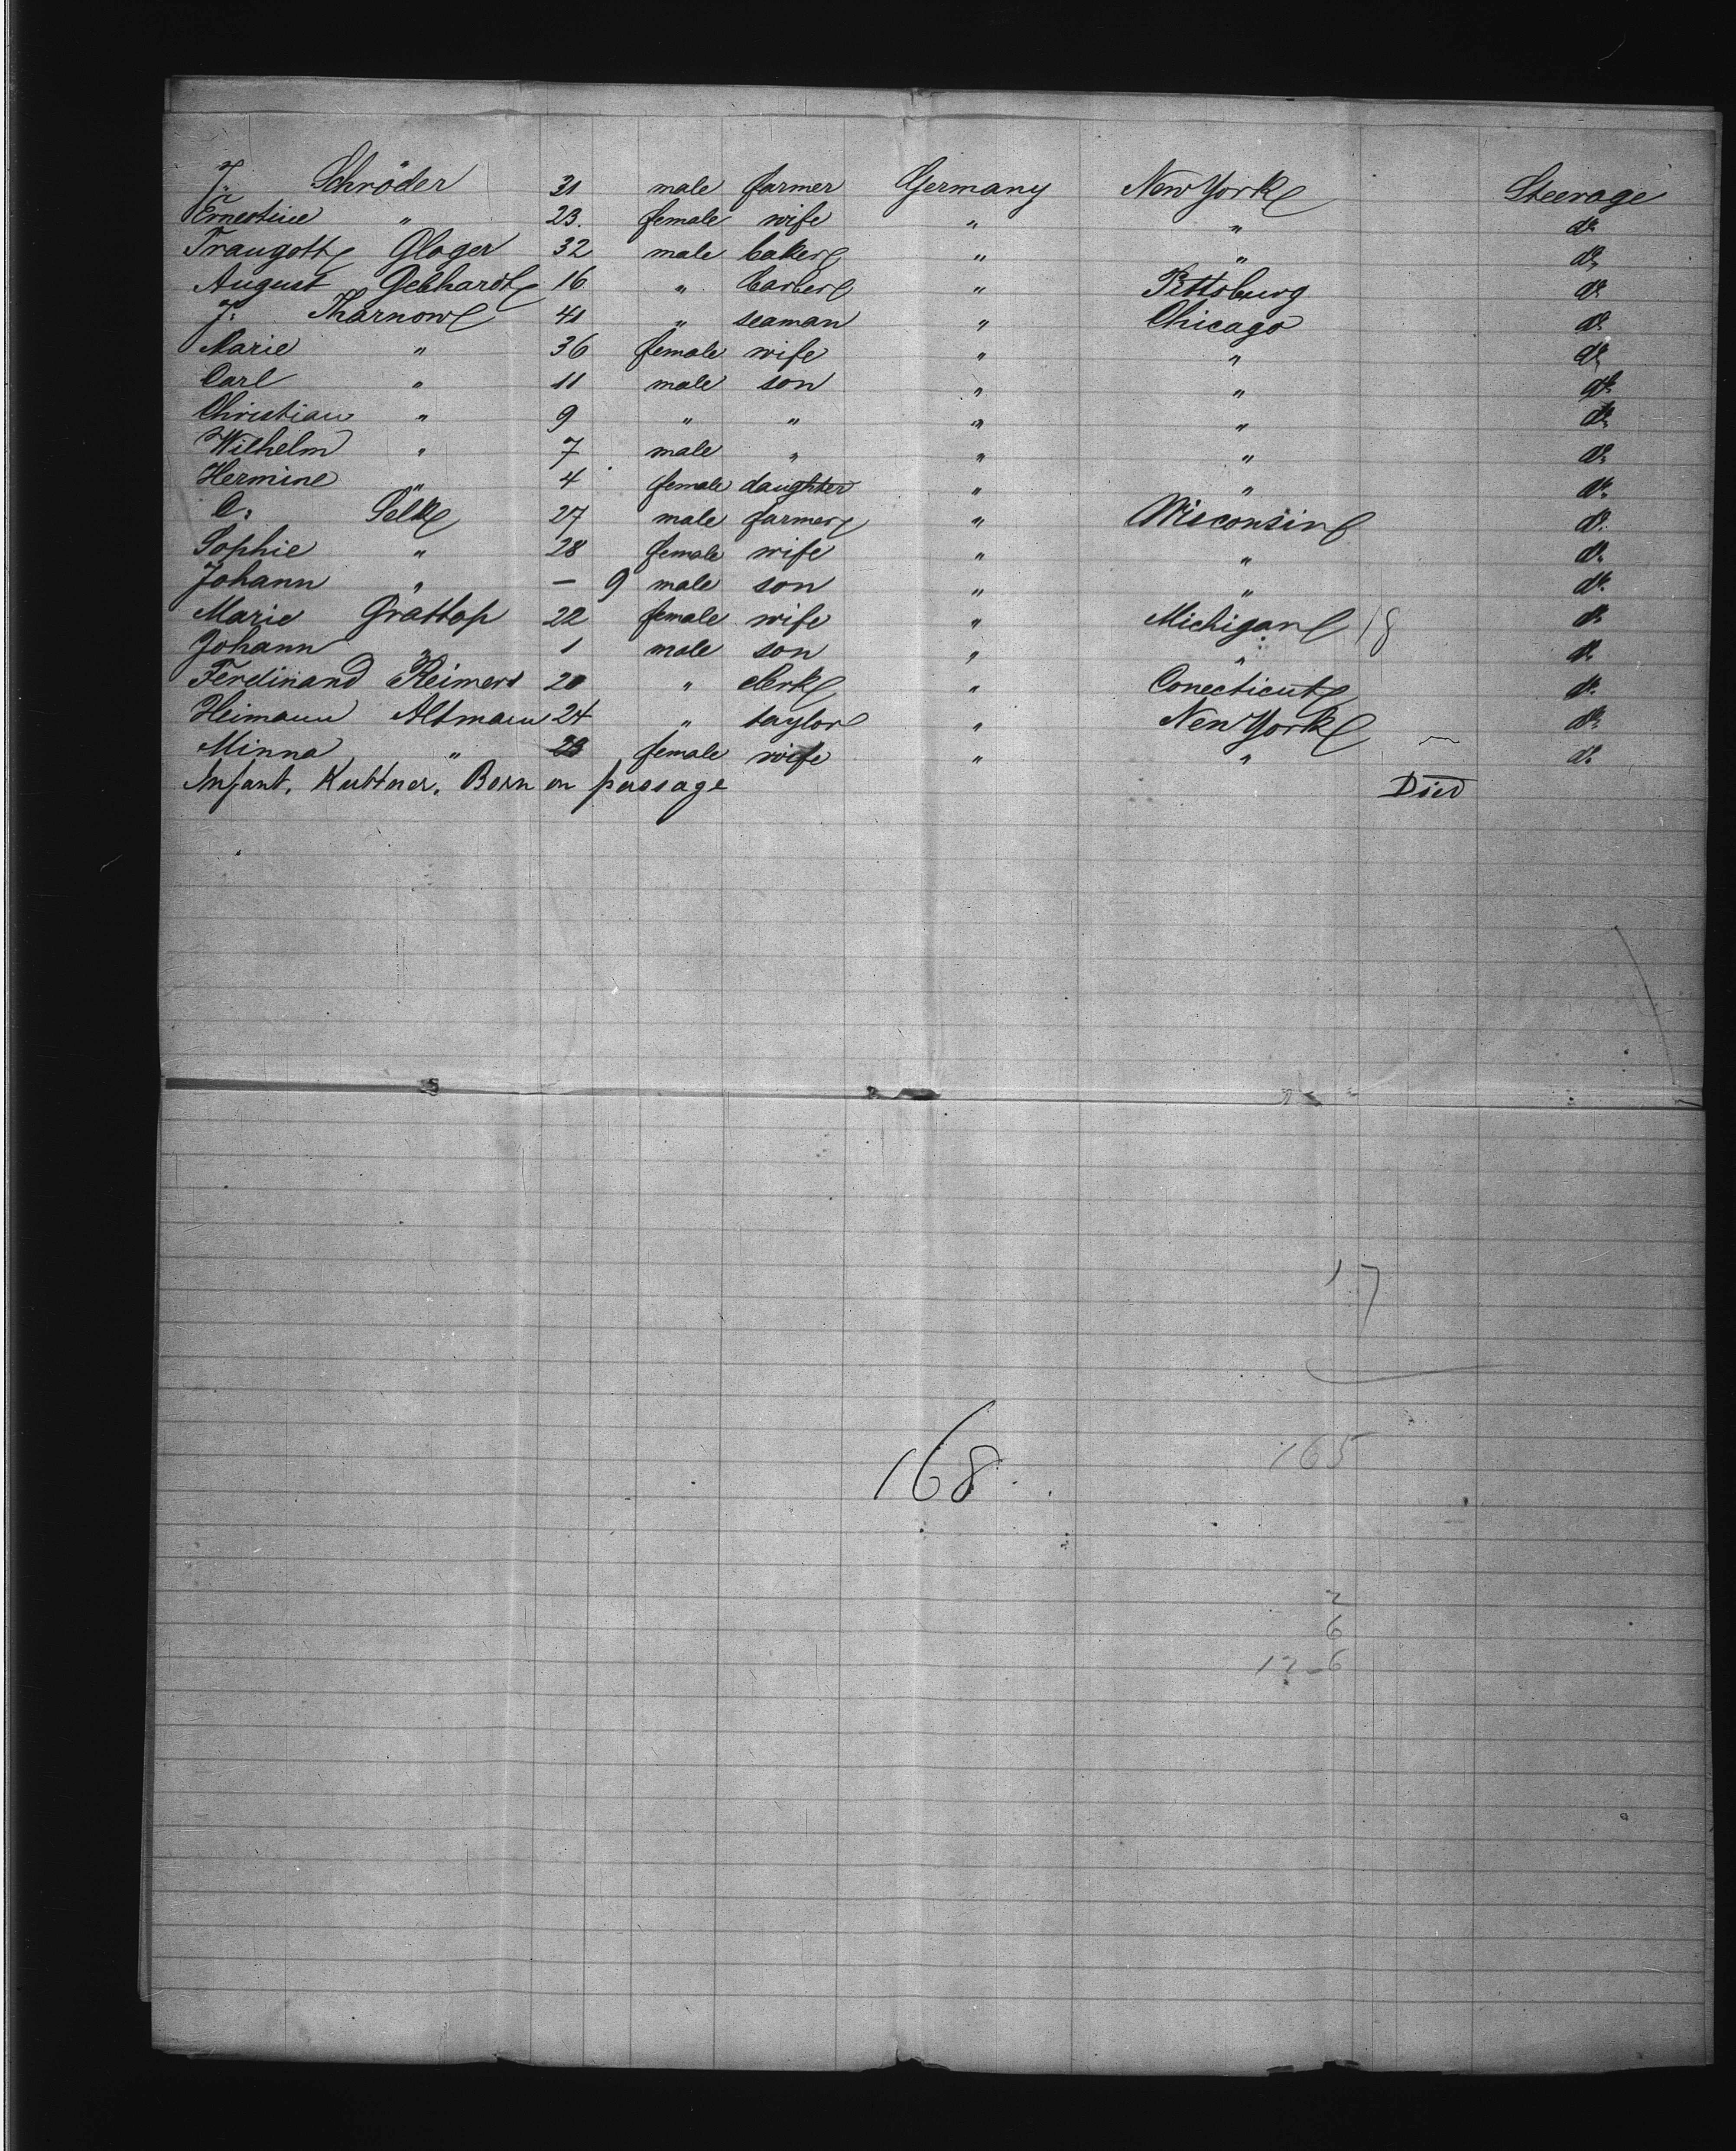 J. Schröder 31 male farmer Germany New York Steerage
Ernestine " 23. female wife " " do
Traugott Gloger 32 male baker " " do
August Gebhardt 16 " barber " Pittsburg do
J. Tharnow 41 " seaman " Chicago do
Marie " 36 female wife " " do
Carl " 11 male son " " do
Christian " 9 " " " " do
Wilhelm " 7 male " " " do
Hermine " 4 female daughter " " do
C. Selk 27 male farmer " Wisconsin do
Sophie " 28 female wife " " do
Johann " – 9 male son " " do
Marie Grattop 22 female wife " Michigan 18 do
Johann " 1 male son " " do
Ferdinand Reimers 20 " clerk " Conecticut do
Heimann Altmann 24 " taylor " New York do
Minna " 23 female wife " " do
Infant. Kuttner. Born on passage Died
17
168.
165
2
6
12-6